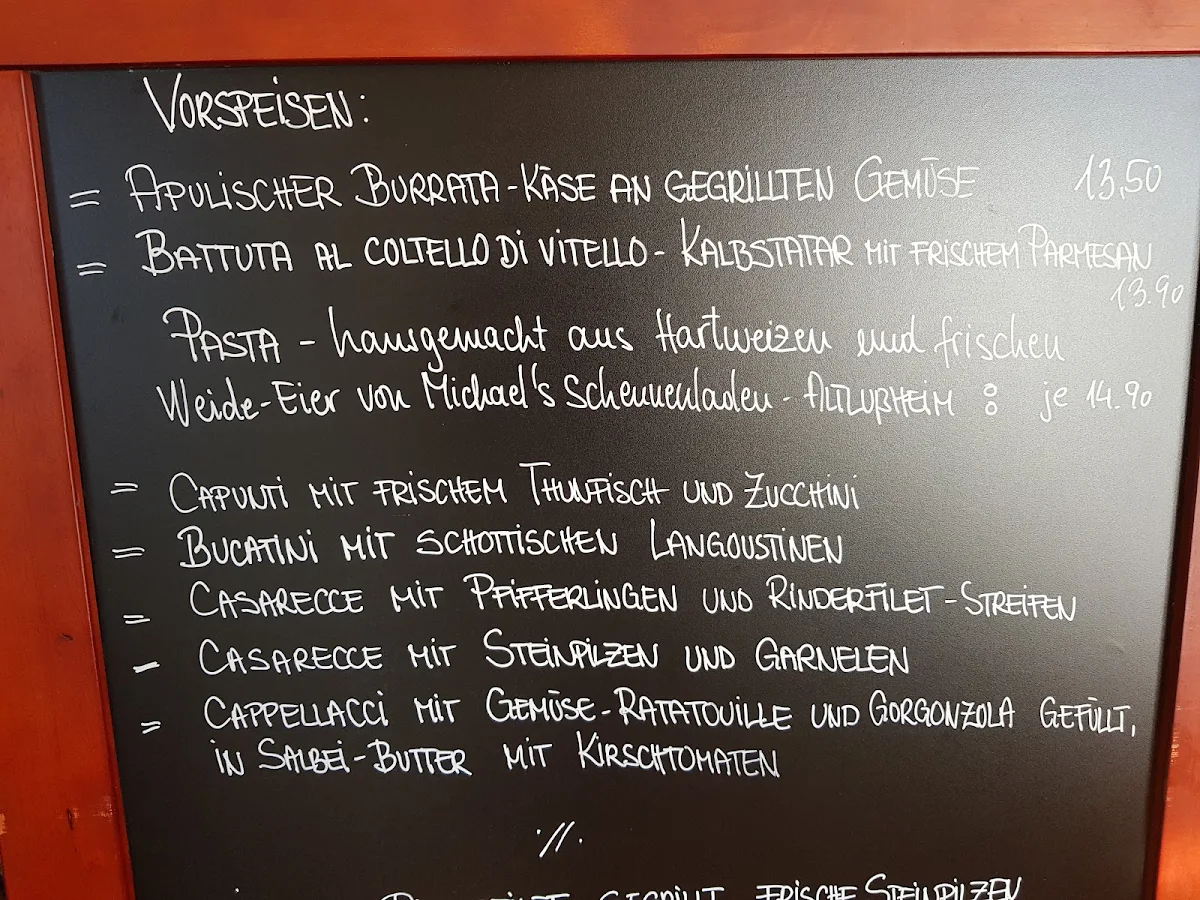 VORSPEISEN:
= APULISCHER BURRATA-KÄSE AN GEGRILLTEN GEMÜSE 13,50
= BATTUTA AL COLTELLO DI VITELLO - KALBSTATAR MIT FRISCHEM PARMESAN
13.90
PASTA - hausgemacht aus Hartweizen und frischen
Weide-Eier von Michael's Scheunenladen - ALTLUßHEIM : je 14.90
= CAPUNTI MIT FRISCHEM THUNFISCH UND ZUCCHINI
= BUCATINI MIT SCHOTTISCHEN LANGOUSTINEN
= CASARECCE MIT PFIFFERLINGEN UND RINDERFILET-STREIFEN
- CASARECCE MIT STEINPILZEN UND GARNELEN
= CAPPELLACCI MIT GEMÜSE-RATATOUILLE UND GORGONZOLA GEFÜLLT,
IN SALBEI-BUTTER MIT KIRSCHTOMATEN
·//.
FRISCHE STEINPILZEN